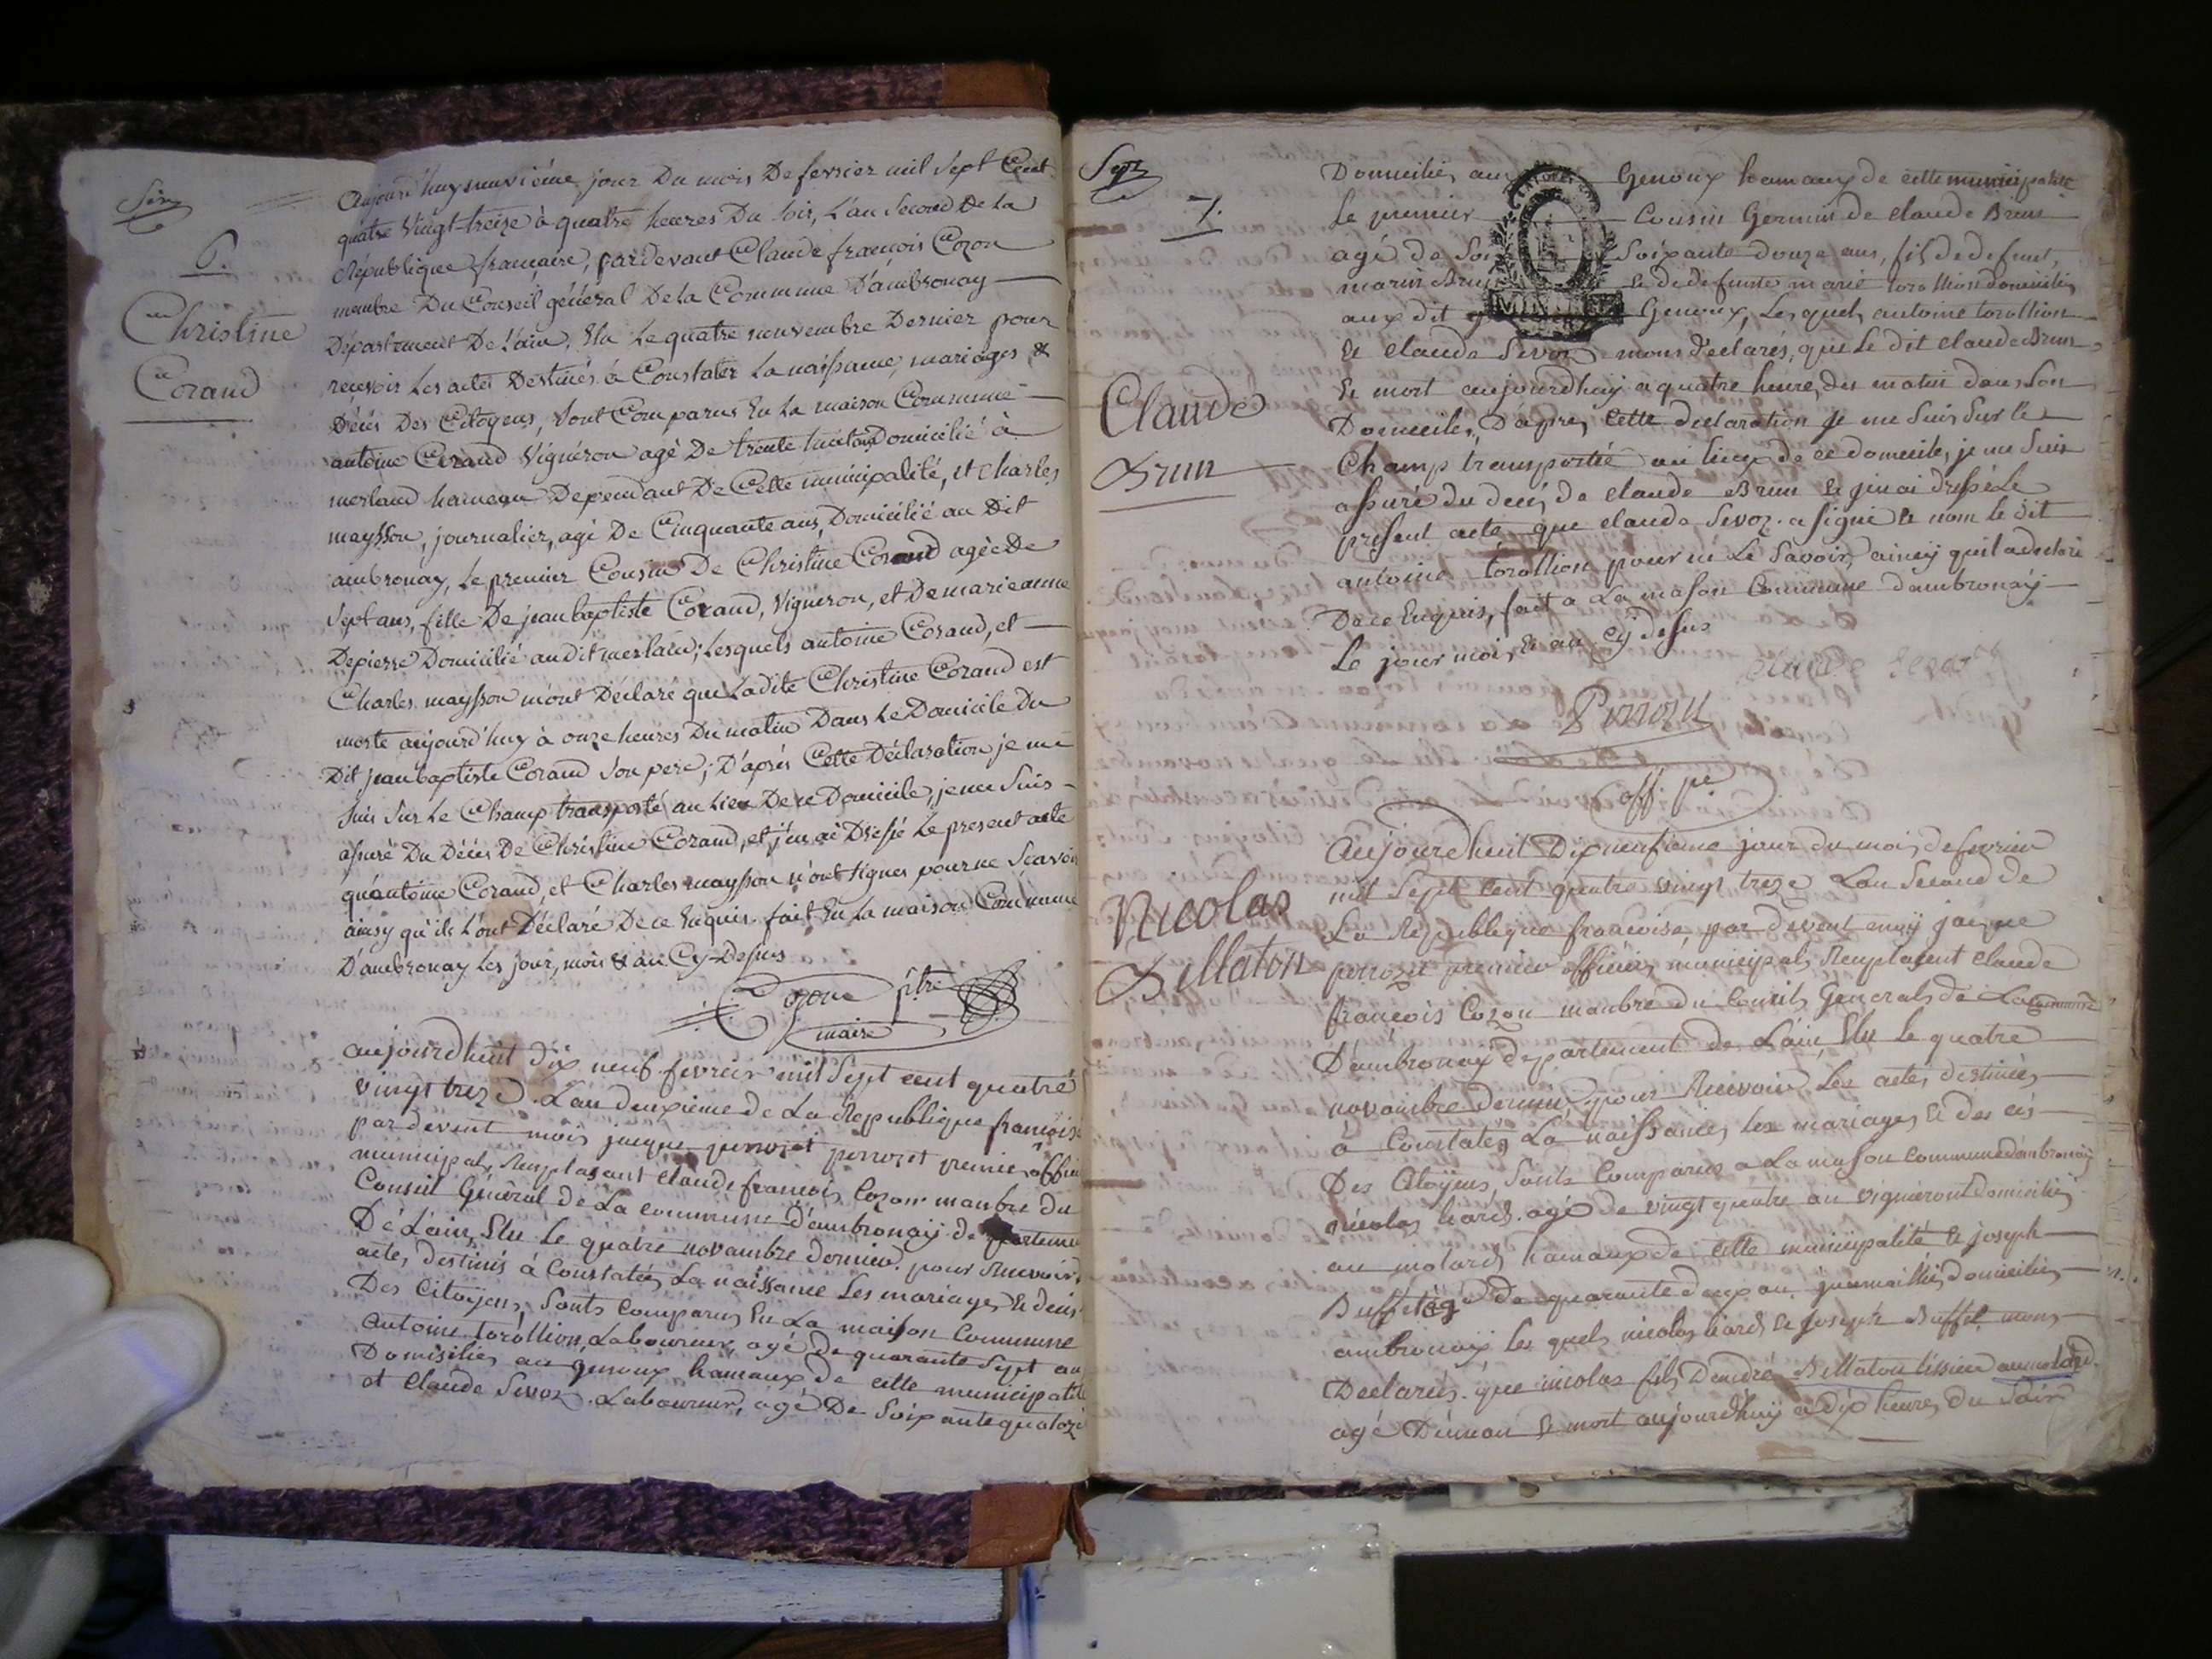 6.
Christine
Corand
Aujourd'huy neuvième jour Du mois De fevrier mil Sept Cent
quatre Vingt-treize à quatre heures Du Soir, L'an Second De La
République française, pardevant Claude françois Cozon
membre Du Conseil général De la Commune D'ambronay
Département De L'ain, Elu Le quatre nouvembre Dernier pour
recevoir Les actes Destinés à Constater La naissance, mariages &
Décès Des Citoyens, Sont Comparus En La maison Commune
antoine Corand Vigneron agé De trente huit ans Domicilié à
merland hameau Dependant De Cette municipalité, et Charles
maysson, journalier, agé De Cinquante ans, Domicilié au Dit
ambronay, Le premier Cousin De Christine Corand agée De
Sept ans, fille De jean baptiste Corand, Vigneron, et De marieanne
Depierre Domicilié audit merland; Lesquels antoine Corand, et
Charles maysson m'ont Déclaré que Ladite Christine Corand est
morte aujourd'huy à onze heures Du matin Dans Le Domicile Du
Dit jean baptiste Corand Son pere; D'après Cette Déclaration je me
Suis Sur Le Champ transporté au Lieu De ce Domicile, je me Suis
assuré Du Décès De Christine Corand, et j'en ai Dressé Le present acte
qu'antoine Corand, et Charles maysson n'ont signés pour ne Sçavoir
ainsy qu'ils L'ont Déclaré De ce Enquis. fait En La maison Commune
D'ambronay Les jour, mois & an Cy-Dessus
Cozon
maire
aujourdhuit dix neuf fevrier mil Sept cent quatre
vingt treze. L'an deuxieme de La Republique françoise
par devent mois jacque perrozet perrozet premier offici
municipal, Remplaçant Claude francois Cozon manbre du
Conseil Général de La commune D'ambronaÿ de partemen
De L'ain, Elu Le quatre novambre dernier. pour Recevoir
acte, destinés à Constater La naissance Les mariages Et deces
Des Citoÿens, Sonts Comparus En La maison Commune
Antoine torollion, Laboureur, agé de quarante Sept an
Domisiliés au genoux hamaux de cette municipalité
et Claude Sevoz. Laboureur, agé De Soixante quatorze
Sept
7.
Claude
Brun
Domiciliés au Genoux hamaux de cette municipalité
Le premier Cousin Germin de Claude Brun
agé de Soixante douze ans, fils de defunt,
marin Brun Et de defunte marie torollion domiciliés
aux dit Genoux, Lesquels antoine torollion
Et Claude Sevoz mons declarés, que Le dit Claude Brun
Et mort aujourdhuy a quatre heure, du matin dans Son
Domicile, Dapres Cette declaration je me Suis Sur le
Champ transporté au lieux de ce domicile, je me Suis
assuré du decès de Claude Brun Et jen ai dressé Le
present acte que Claude Sevoz. a signé Et nom le dit
antoine torollion pour ne Le Savoir, ainsy quil a declaré
De ce Enquis, fait a La maison Commune dambronaÿ
Le jour mois Et an cÿ dessus
Claude Sevoz
off
Nicolas
Billaton
Aujourdhuit Dix neufieme jour du mois, de fevrier
mil Sept cent quatre vingt treze Lan Second de
La Republique francoise, par devent moÿ jacque
perrozet premier officier, municipal, Remplaçent Claude
francois Cozon manbre du Conseils Generals de La Commune
Dambronaÿ departement de Lain, Elu Le quatre
novambre dernier, pour Recevoir, Les actes destinés
a Constater La naissance, Les mariages, Et des ces
Des Citoÿens, Sonts Comparus a La maison Commune dambronaÿ
nicolas liard. agé de vingt quatre an vigneront domiciliés
au molard, hamaux de cette municipalité Et joseph
Buffet agé de quarante deux an, journallié, domiciliés
ambronaÿ les quels nicolas liard, Et joseph Buffet, mons
Declarés. que nicolas fils Dandré Billaton tissier au molard.
agé Dun an Et mort aujourdhuÿ a dix heure, Du Soir